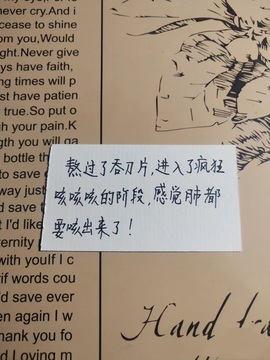 never cry.And i
cease to shine
om you,Would
ght.Never give
ys have faith,
ng times will p
st have patien
true.So put o
h your pain.K
ng you will ga
bottle th
d save
't I'd like
ternity
with youIf I c
rif words cou
'd save ever
en again I w
hank you fo
d Loving m
熬过了吞刀片,进入了疯狂
咳咳咳的阶段,感觉肺都
要咳出来了!
Hand